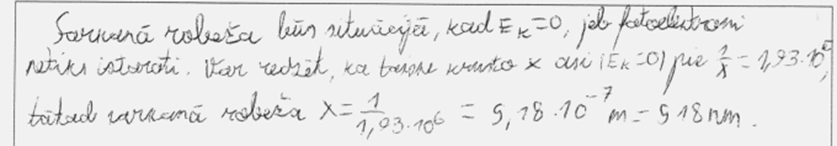 Sarkanā robeža būs situācijā, kad E_K=0, jeb fotoelektroni
netiks izstaroti. Var redzēt, ka taisne krusto x asi (E_K=0) pie 1/λ = 1,93·10⁶,
tātad sarkanā robeža λ = 1/1,93·10⁶ = 5,18·10⁻⁷ m = 518 nm.